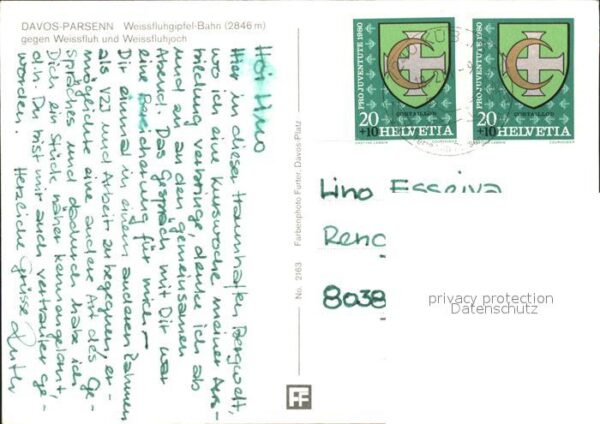 DAVOS-PARSENN Weissfluhgipfel-Bahn (2846 m)
gegen Weissfluh und Weissfluhjoch
Hoi Lino
Hier in dieser traumhaften Bergwelt,
wo ich eine Kurswoche meiner Aus-
bildung verbringe, denke ich ab
und zu an den gemeinsamen
Abend. Das Gespräch mit Dir war
eine Bereicherung für mich –
Dir einmal in einem anderen Rahmen
als VZI und Arbeit zu begegnen, er-
möglichte eine andere Art des Ge-
spräches und dadurch habe ich
Dich ein Stück näher kennengelernt,
d.h. Du bist mir auch vertrauter ge-
worden. Herzliche Grüsse
No. 2163 Farbenphoto Furter, Davos-Platz
FF
PRO JUVENTUTE 1980
CORTAILLOD
20
+10 HELVETIA
PRO JUVENTUTE 1980
CORTAILLOD
20
+10 HELVETIA
Lino Esseiva
8038
privacy protection
Datenschutz